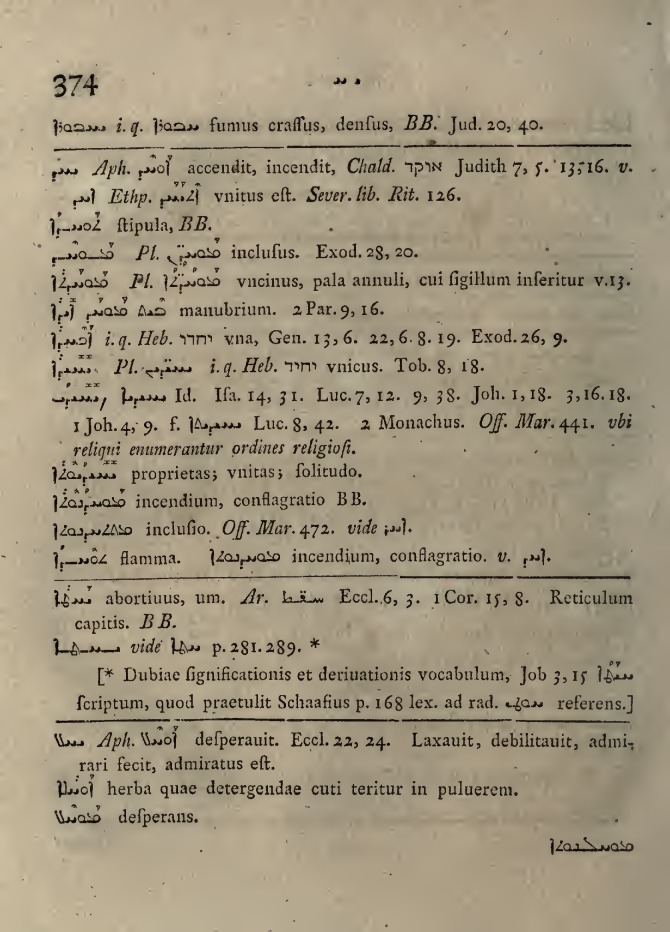 374 ܝ ܚ
i. q. fumus craſſus, denſus, BB. Jud. 20, 40.
ܝܚܕ Aph. ܐܘܚܕ accendit, incendit, Chald. אוקר Judith 7, 5. 13, 16. v.
ܐܚܕ Ethp. ܐܬܝܚܕ vnitus eſt. Sever. lib. Rit. 126.
ſtipula, BB.
Pl. incluſus. Exod. 28, 20.
Pl. vncinus, pala annuli, cui ſigillum inſeritur v.13.
manubrium. 2 Par. 9, 16.
i. q. Heb. יחדו vna, Gen. 13, 6. 22, 6. 8. 19. Exod. 26, 9.
ܝܚܝܕ Pl. ܝܚܝܕܝܢ i. q. Heb. יחיד vnicus. Tob. 8, 18.
ܝܚܝܕܝܐ Id. Iſa. 14, 31. Luc. 7, 12. 9, 38. Joh. 1, 18. 3, 16. 18.
1 Joh. 4, 9. f. ܝܚܝܕܬܐ Luc. 8, 42. 2 Monachus. Off. Mar. 441. vbi
reliqui enumerantur ordines religioſi.
ܝܚܝܕܝܘܬܐ proprietas; vnitas; ſolitudo.
ܡܘܚܕܢܘܬܐ incendium, conflagratio BB.
ܡܬܬܚܝܕܢܘܬܐ incluſio. Off. Mar. 472. vide ܐܚܕ.
flamma. incendium, conflagratio. v. ܐܚܕ.
ܝܚܛܐ abortiuus, um. Ar. سقط Eccl. 6, 3. 1 Cor. 15, 8. Reticulum
capitis. BB.
vide p. 281. 289. *
[* Dubiae ſignificationis et deriuationis vocabulum, Job 3, 15 ܝܚܛܐ
ſcriptum, quod praetulit Schaafius p. 168 lex. ad rad. referens.]
ܝܚܠ Aph. ܐܘܚܠ deſperauit. Eccl. 22, 24. Laxauit, debilitauit, admi-
rari fecit, admiratus eſt.
ܐܘܚܠܐ herba quae detergendae cuti teritur in puluerem.
ܡܘܚܠ deſperans.
ܡܘܚܠܢܘܬܐ